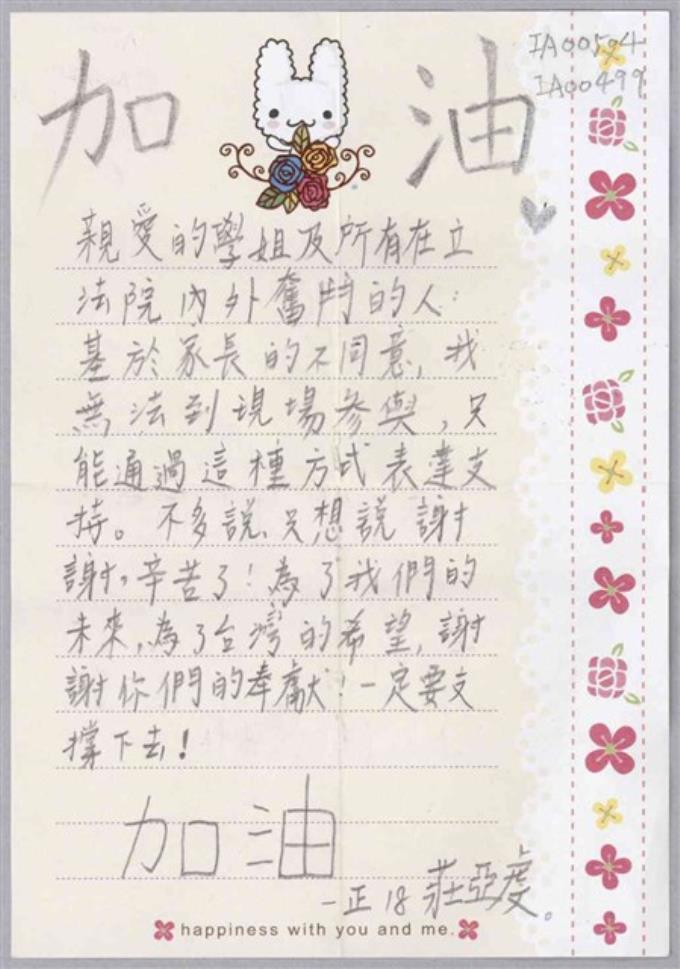 加油
IA00504
IA00499
親愛的學姐及所有在立
法院內外奮鬥的人:
基於家長的不同意,我
無法到現場參與,只
能通過這種方式表達支
持。不多說,只想說謝
謝,辛苦了!為了我們的
未來,為了台灣的希望,謝
謝你們的奉獻!一定要支
撐下去!
加油
一正18 莊亞虔。
happiness with you and me.